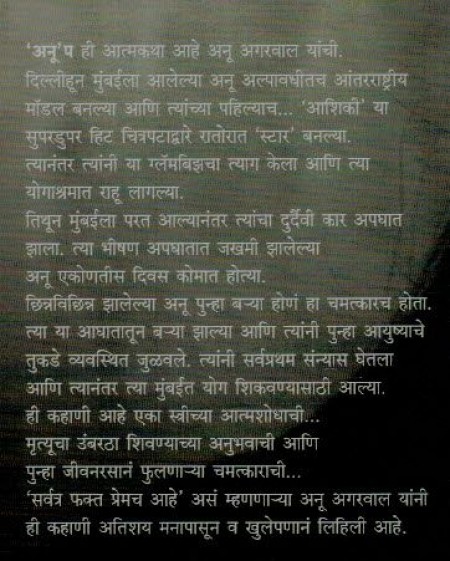 'अनू'प ही आत्मकथा आहे अनू अगरवाल यांची.
दिल्लीहून मुंबईला आलेल्या अनू अल्पावधीतच आंतरराष्ट्रीय
मॉडल बनल्या आणि त्यांच्या पहिल्याच... 'आशिकी' या
सुपरडुपर हिट चित्रपटाद्वारे रातोरात 'स्टार' बनल्या.
त्यानंतर त्यांनी या ग्लॅमबिझचा त्याग केला आणि त्या
योगाश्रमात राहू लागल्या.
तिथून मुंबईला परत आल्यानंतर त्यांचा दुर्दैवी कार अपघात
झाला. त्या भीषण अपघातात जखमी झालेल्या
अनू एकोणतीस दिवस कोमात होत्या.
छिन्नविछिन्न झालेल्या अनू पुन्हा बऱ्या होणं हा चमत्कारच होता.
त्या या आघातातून बऱ्या झाल्या आणि त्यांनी पुन्हा आयुष्याचे
तुकडे व्यवस्थित जुळवले. त्यांनी सर्वप्रथम संन्यास घेतला
आणि त्यानंतर त्या मुंबईत योग शिकवण्यासाठी आल्या.
ही कहाणी आहे एका स्त्रीच्या आत्मशोधाची...
मृत्यूचा उंबरठा शिवण्याच्या अनुभवाची आणि
पुन्हा जीवनरसानं फुलणाऱ्या चमत्काराची...
'सर्वत्र फक्त प्रेमच आहे' असं म्हणणाऱ्या अनू अगरवाल यांनी
ही कहाणी अतिशय मनापासून व खुलेपणानं लिहिली आहे.